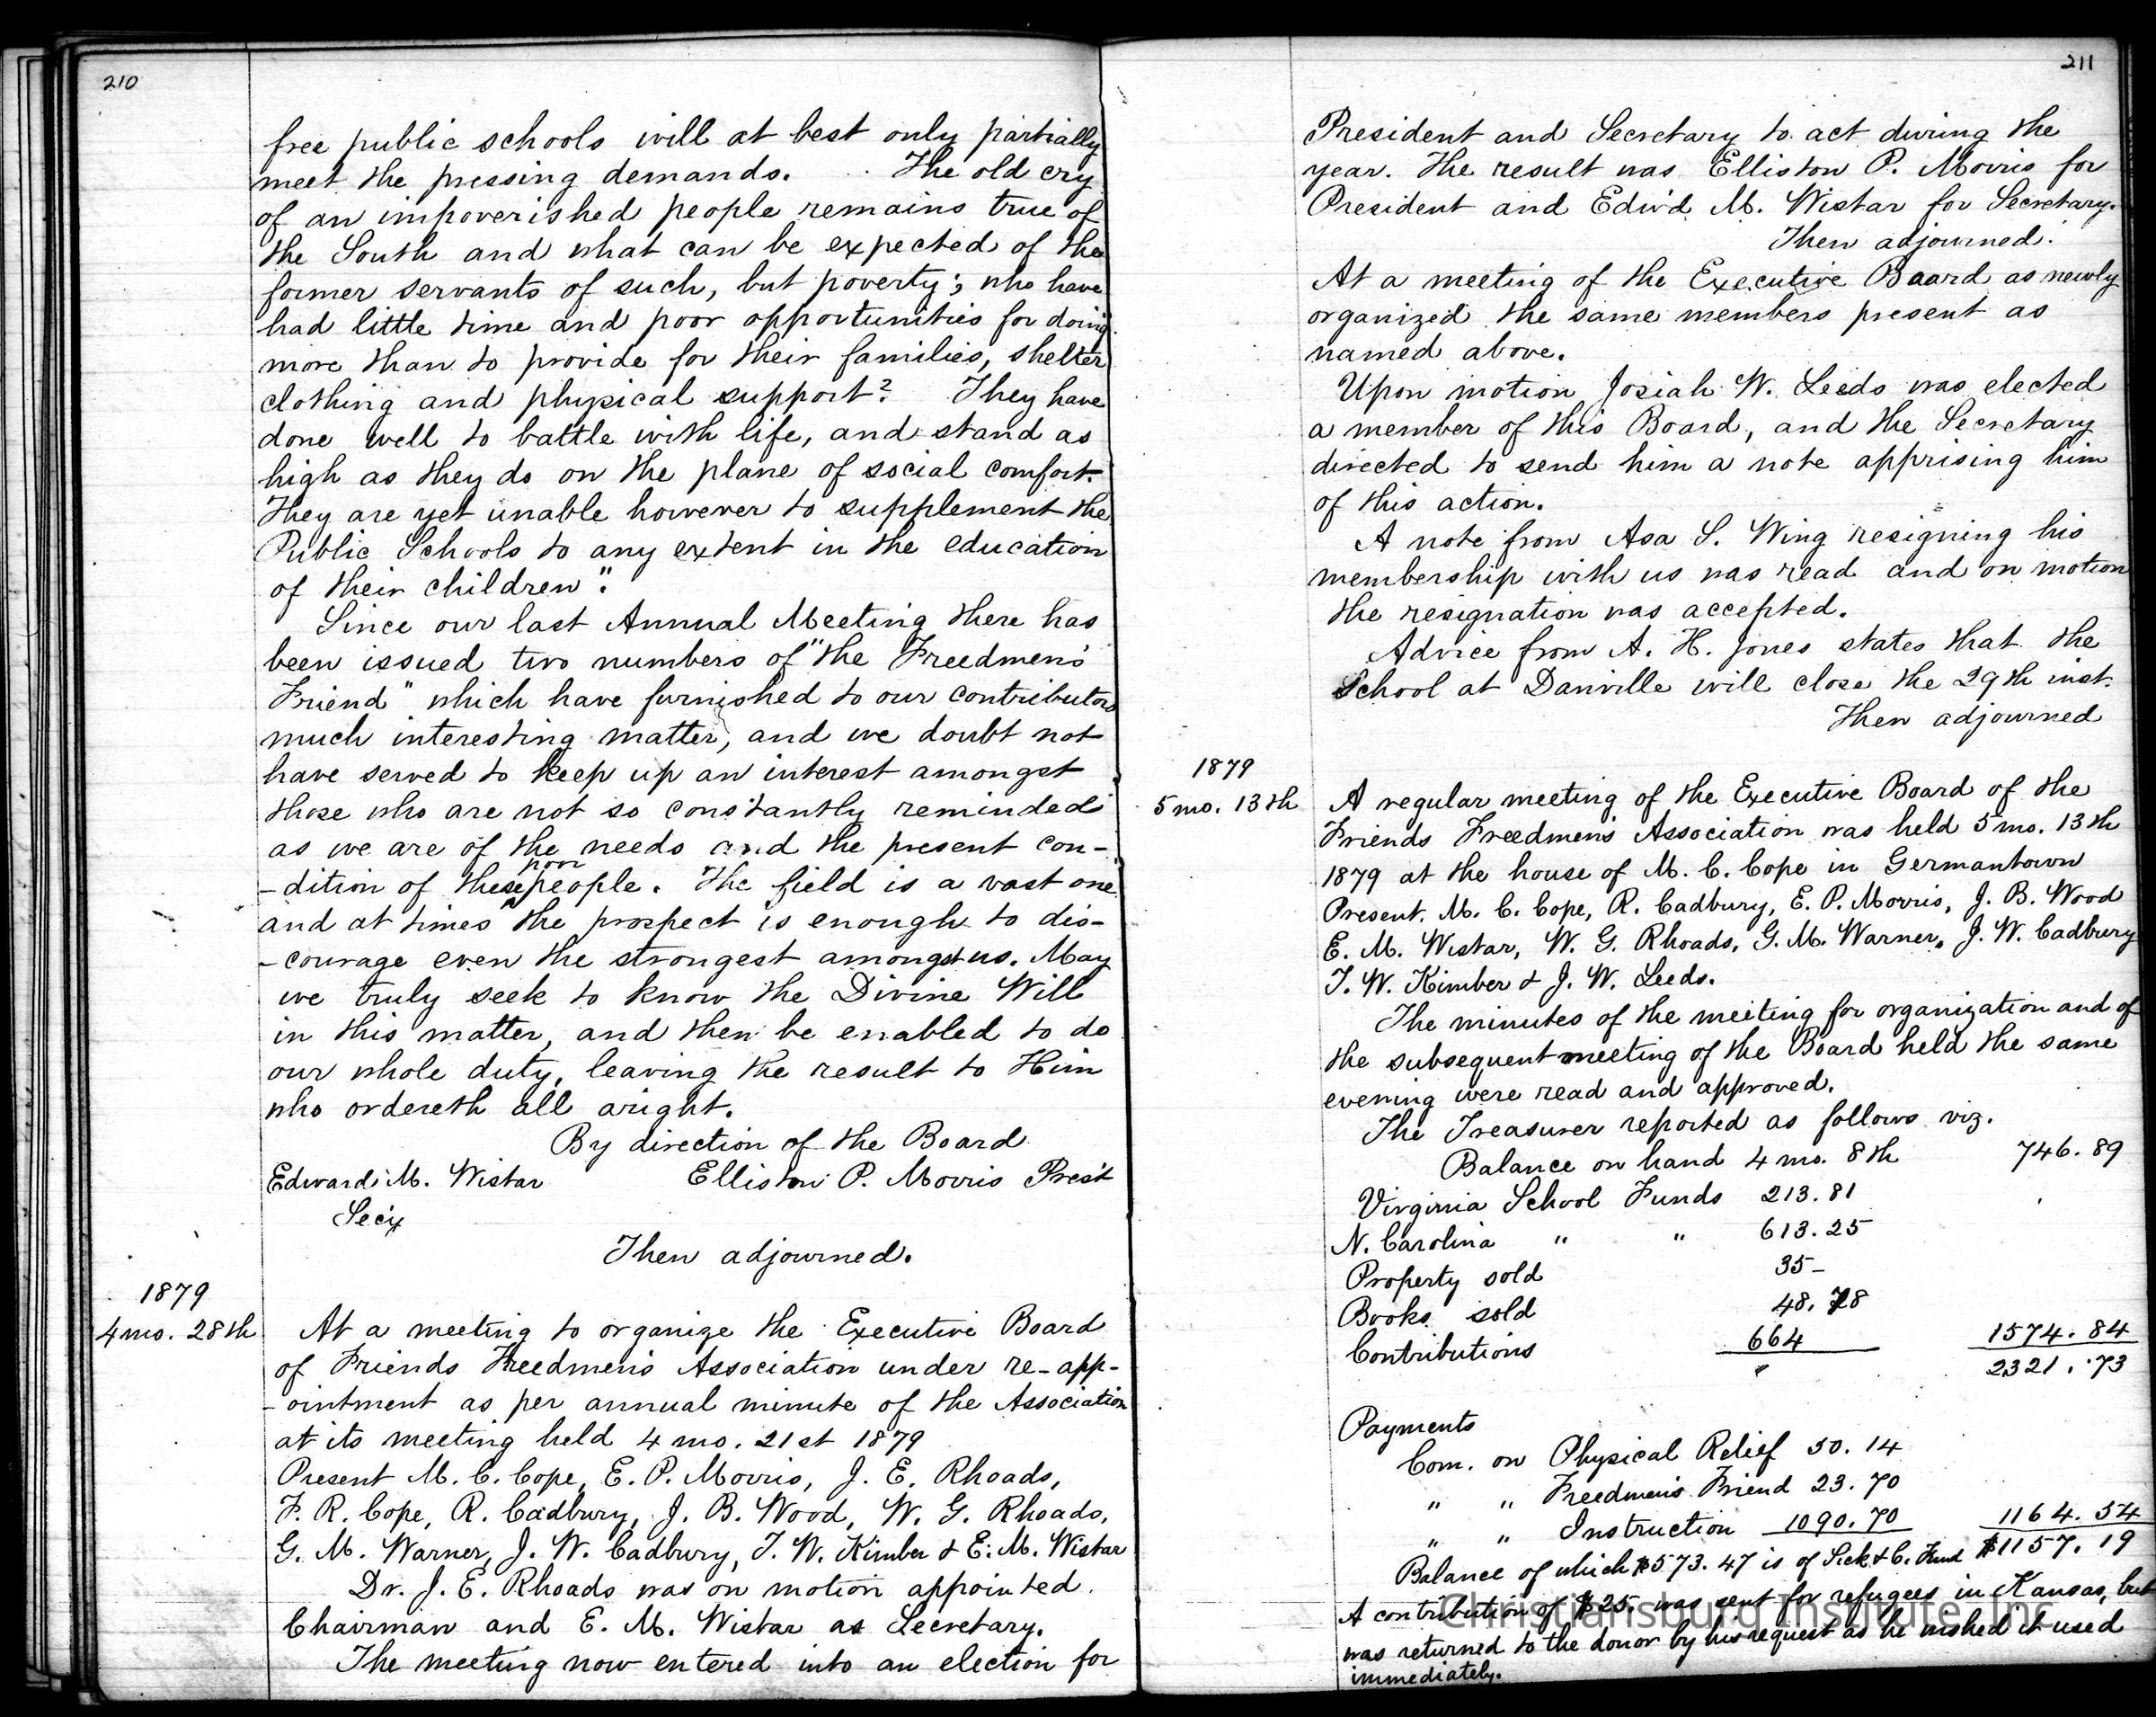 210
free public schools will at best only partially
meet the pressing demands. The old cry
of an impoverished people remains true of
the South and what can be expected of the
former servants of such, but poverty; who have
had little time and poor opportunities for doing
more than to provide for their families, shelter
clothing and physical support? They have
done well to battle with life, and stand as
high as they do on the plane of social comfort.
They are yet unable however to supplement the
Public Schools to any extent in the education
of their children".
Since our last Annual Meeting there has
been issued two numbers of "the Freedmen's
Friend" which have furnished to our contributors
much interesting matter, and we doubt not
have served to keep up an interest amongst
those who are not so constantly reminded
as we are of the needs and the present con-
-dition of these poor people. The field is a vast one
and at times the prospect is enough to dis-
-courage even the strongest amongst us. May
we truly seek to know the Divine Will
in this matter, and then be enabled to do
our whole duty, leaving the result to Him
who ordereth all aright.
By direction of the Board
Edward M. Wistar Elliston P. Morris Pres't
Sec'y
Then adjourned.
1879
4 mo. 28th At a meeting to organize the Executive Board
of Friends Freedmen's Association under re-app-
-ointment as per annual minute of the Association
at its meeting held 4 mo. 21st 1879
Present M. C. Cope, E. P. Morris, J. E. Rhoads,
F. R. Cope, R. Cadbury, J. B. Wood, W. G. Rhoads,
G. M. Warner, J. W. Cadbury, T. W. Kimber & E. M. Wistar
Dr. J. E. Rhoads was on motion appointed
Chairman and E. M. Wistar as Secretary.
The meeting now entered into an election for
211
President and Secretary to act during the
year. The result was Elliston P. Morris for
President and Edw'd M. Wistar for Secretary.
Then adjourned.
At a meeting of the Executive Board as newly
organized the same members present as
named above.
Upon motion Josiah W. Leeds was elected
a member of this Board, and the Secretary
directed to send him a note apprising him
of this action.
A note from Asa S. Wing resigning his
membership with us was read and on motion
the resignation was accepted.
Advice from A. H. Jones states that the
School at Danville will close the 29th inst.
Then adjourned
1879
5 mo. 13th A regular meeting of the Executive Board of the
Friends Freedmen's Association was held 5 mo. 13th
1879 at the house of M. C. Cope in Germantown
Present, M. C. Cope, R. Cadbury, E. P. Morris, J. B. Wood
E. M. Wistar, W. G. Rhoads, G. M. Warner, J. W. Cadbury
T. W. Kimber & J. W. Leeds.
The minutes of the meeting for organization and of
the subsequent meeting of the Board held the same
evening were read and approved.
The Treasurer reported as follows viz.
Balance on hand 4 mo. 8th 746.89
Virginia School Funds 213.81
N. Carolina " " 613.25
Property sold 35-
Books sold 48.78
Contributions 664 1574.84
2321.73
Payments
Com. on Physical Relief 50.14
" " Freedmen's Friend 23.70
" " Instruction 1090.70 1164.54
Balance of which $573.47 is of S.ck & C. Fund $1157.19
A contribution of $25. was sent for refugees in Kansas, but
was returned to the donor by his request as he wished it used
immediately.
Christiansburg Institute, Inc